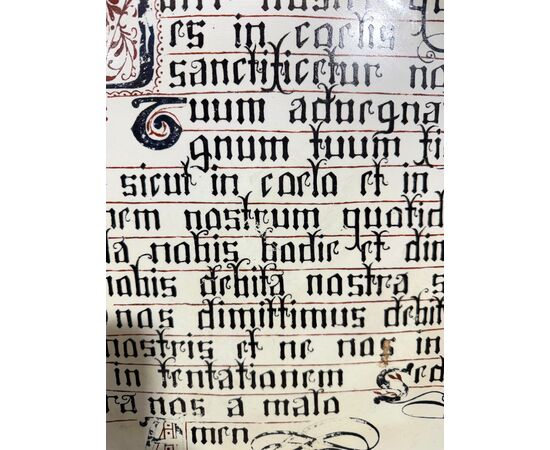 nostr
es in coelis
sanctificetur no
Tuum aduegna
gnum tuum fi
sicut in coelo et in
nem nostrum quotid
a nobis hodie et dim
nobis debita nostra s
nos dimittimus debit
nostris et ne nos in
in tentationem Sed
ra nos a malo
Amen